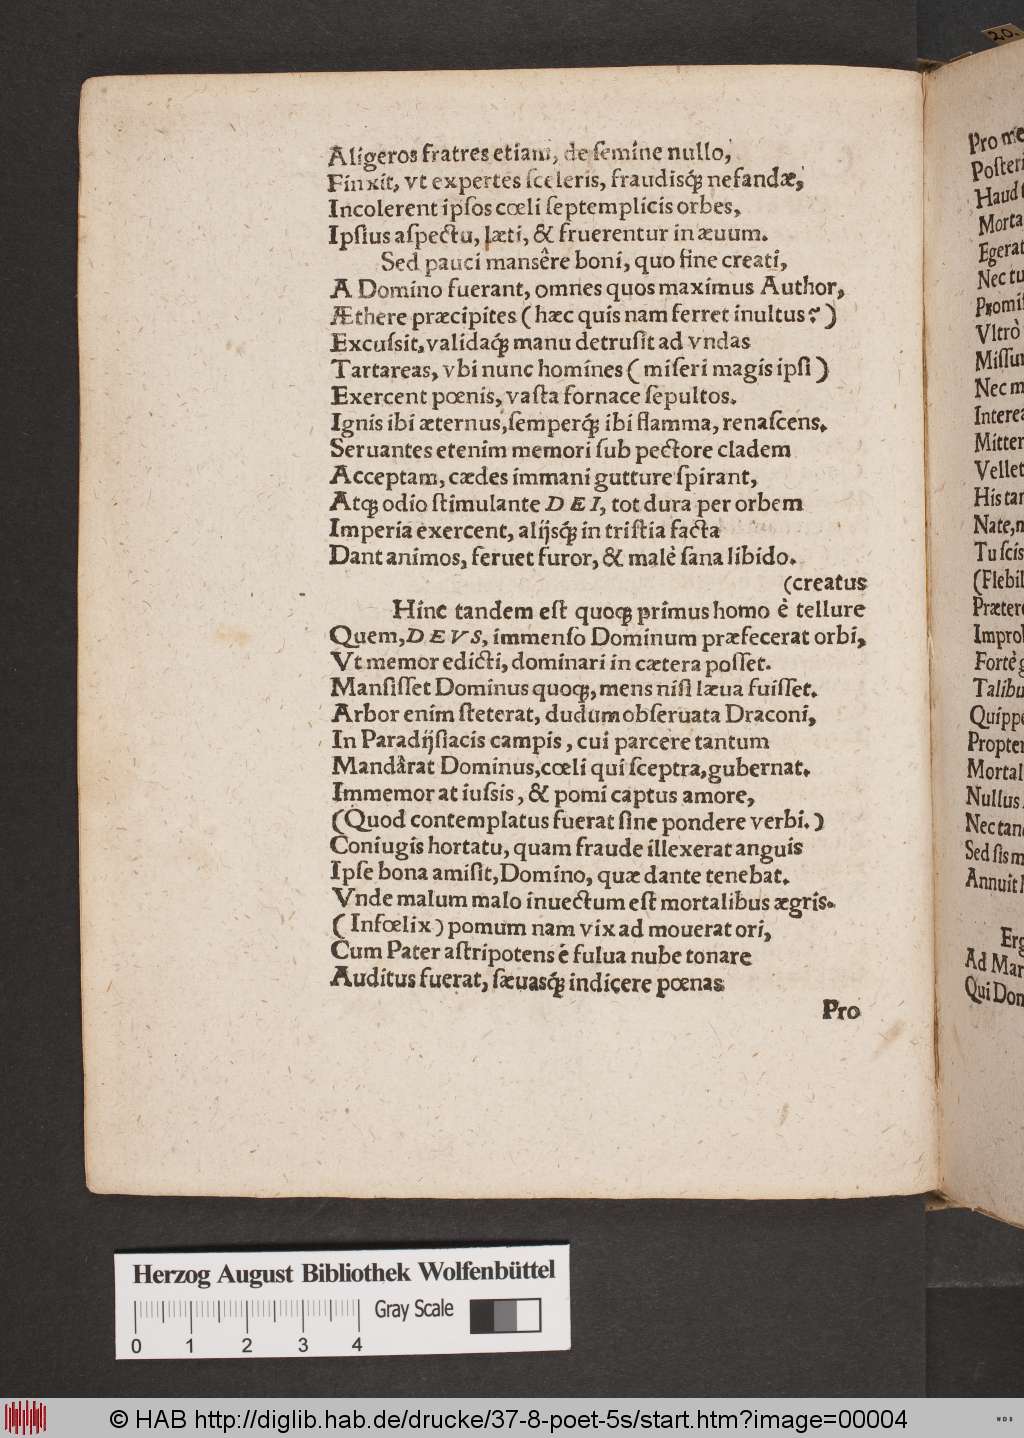 Aligeros fratres etiam, de ſemine nullo,
Finxit, vt expertes ſceleris, fraudisq́; nefandæ,
Incolerent ipſos cœli ſeptemplicis orbes,
Ipſius aſpectu, læti, & fruerentur in æuum.
Sed pauci mansêre boni, quo fine creati,
A Domino fuerant, omnes quos maximus Author,
Æthere præcipites (hæc quis nam ferret inultus?)
Excuſsit, validaq́; manu detruſit ad vndas
Tartareas, vbi nunc homines (miſeri magis ipſi)
Exercent pœnis, vaſta fornace ſepultos.
Ignis ibi æternus, ſemperq́; ibi flamma, renaſcens.
Seruantes etenim memori ſub pectore cladem
Acceptam, cædes immani gutture ſpirant,
Atq; odio ſtimulante DEI, tot dura per orbem
Imperia exercent, alijsq́; in triſtia facta
Dant animos, feruet furor, & malè ſana libido.
(creatus
Hinc tandem eſt quoq; primus homo è tellure
Quem, DEVS, immenſo Dominum præfecerat orbi,
Vt memor edicti, dominari in cætera poſſet.
Manſiſſet Dominus quoq;, mens niſi læua fuiſſet.
Arbor enim ſteterat, dudum obſeruata Draconi,
In Paradijſiacis campis, cui parcere tantum
Mandârat Dominus, cœli qui ſceptra, gubernat.
Immemor at iuſsis, & pomi captus amore,
(Quod contemplatus fuerat ſine pondere verbi.)
Coniugis hortatu, quam fraude illexerat anguis
Ipſe bona amiſit, Domino, quæ dante tenebat.
Vnde malum malo inuectum eſt mortalibus ægris.
(Infœlix) pomum nam vix ad mouerat ori,
Cum Pater aſtripotens é fulua nube tonare
Auditus fuerat, ſæuasq́; indicere pœnas
Pro
20.
Pro me
Poſter
Haud
Morta
Egerat
Nec tu
Promiſ
Vltrò
Miſſu
Nec m
Interea
Mitter
Vellet
His tan
Nate, n
Tu ſcis
(Flebil
Præter
Improb
Fortè g
Talibu
Quippe
Propter
Mortal
Nullus
Nec tan
Sed ſis m
Annuit
Erg
Ad Mar
Qui Dom
Herzog August Bibliothek Wolfenbüttel
Gray Scale
0 1 2 3 4
© HAB http://diglib.hab.de/drucke/37-8-poet-5s/start.htm?image=00004